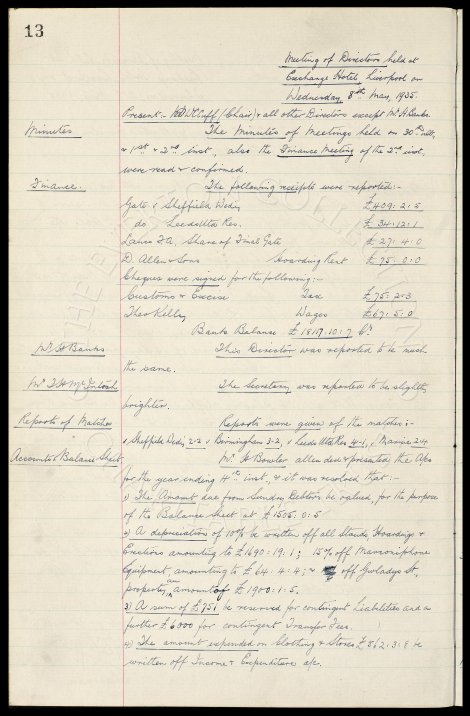 13
Meeting of Directors held at
Exchange Hotel, Liverpool on
Wednesday 8th May, 1935.
Present:- W.C. Cuff (Chair) & all other Directors except Mr H. Banks.
Minutes The Minutes of Meetings held on 30th ulto,
& 1st & 2nd inst, also the Finance Meeting of the 2nd inst,
were read & confirmed.
Finance. The following receipts were reported:-
Gate v Sheffield Wedy £409.2.5
do Leeds Utd Res. £34.12.1
Lancs F.A. Share of Final Gate £27.4.0
D. Allen & Sons Hoarding Rent £75.0.0
Cheques were signed for the following:-
Customs & Excise Tax £75.2.3
Theo Kelly Wages £67.5.0
Bank Balance £ 10.7 Cr.
Mr H Banks This Director was reported to be much
the same.
Mr T.H. McIntosh The Secretary was reported to be slightly
brighter.
Reports of Matches Reports were given of the matches:-
v Sheffield Wedy, 2-2 v Birmingham 3-2, v Leeds Utd Res 4-1, v Marine 2-4
Accounts & Balance Sheet. Mr H Bowler attended & presented the A/cs
for the year ending 4th inst, & it was resolved that:-
1) The Amount due from Sundry Debtors be valued, for the purpose
of the Balance Sheet at £1505.0.5
2) A depreciation of 10% be written off all Stands Hoardings &
Erections amounting to £1690.19.1; 15% off Marconiphone
Equipment, amounting to £64.4.4; & off Gwladys St.,
property, an amount of £1900.1.5.
3) A sum of £751 be reserved for contingent Liabilities and a
further £6000 for contingent Transfer Fees.
4) The amount expended on Clothing & Stores £862.3.8 be
written off Income & Expenditure a/c.